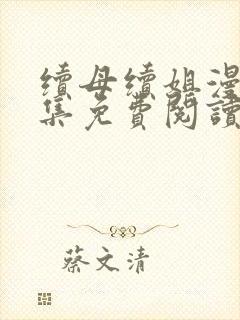 續母續姐漫
集免費閱讀
蔡文清